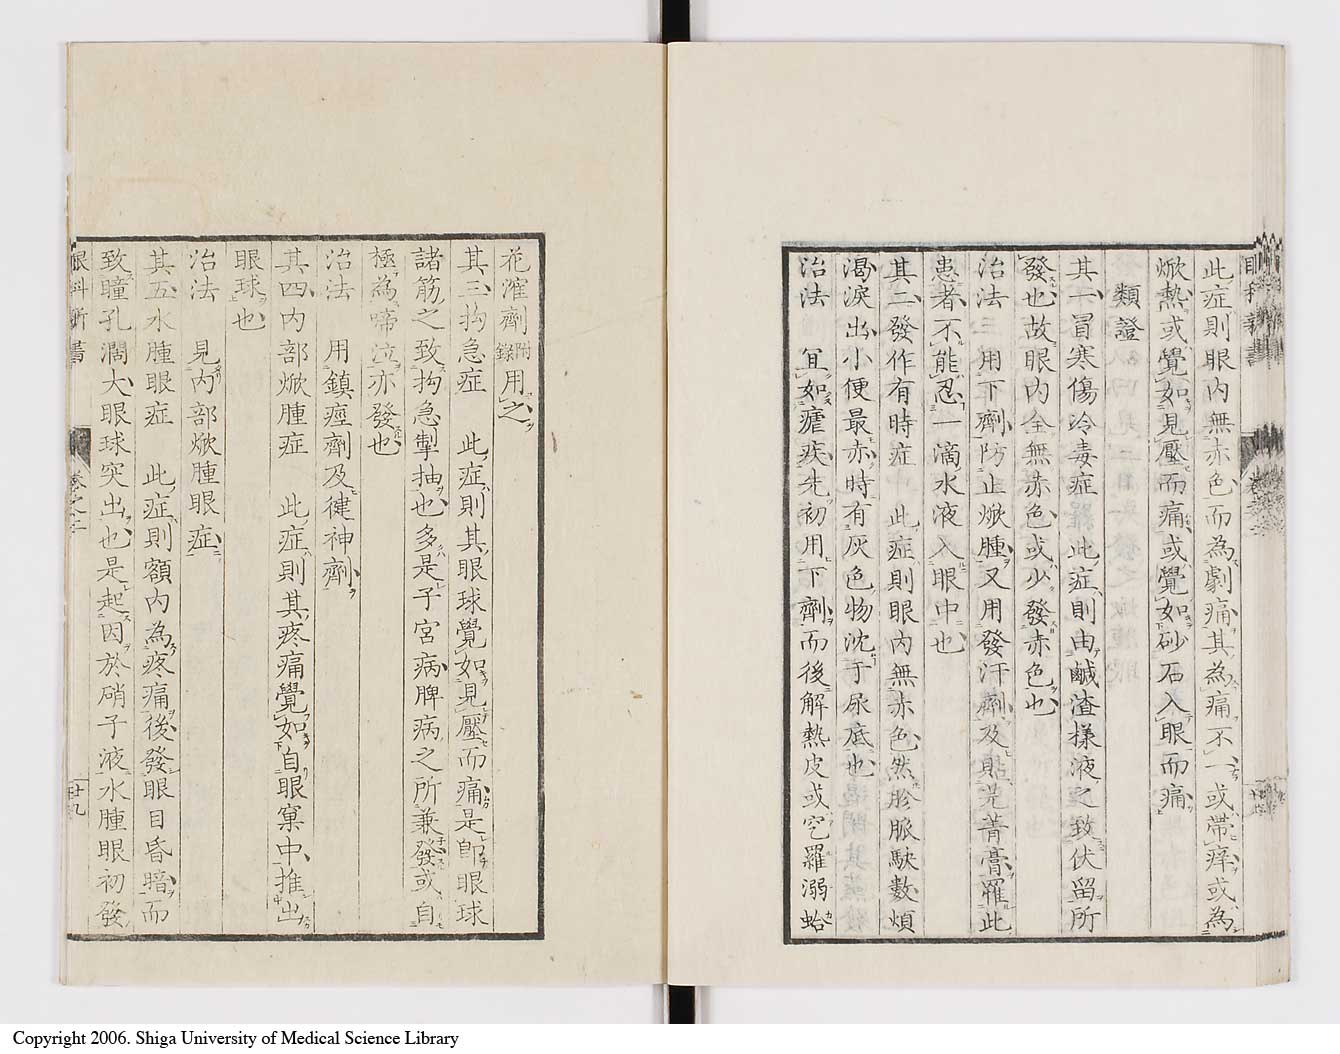 此症則眼内無赤色而為劇痛其為痛不一或帶痒或為
焮熱或覺如見壓而痛或覺如砂石入眼而痛
類證
其一冒寒傷冷毒症 此症則由鹹渣様液之致伏留所
發也故眼内全無赤色或少發赤色也
治法 用下劑防止焮腫又用發汗劑及貼芫菁膏羅此
患者不能忍一滴水液入眼中也
其二發作有時症 此症則眼内無赤色然胗脈駃數煩
渴淚出小便最赤時有灰色物沈于尿底也
治法 宜如瘧疾先初用下劑而後解熱皮或
花 劑附錄用之
其三拘急症 此症則其眼球覺如見壓而痛是即眼球
諸筋之致拘急掣抽也多是子宮病脾病之所兼發或自
極為啼泣亦發也
治法 用鎮痙劑及健神劑
其四内部焮腫症 此症則其疼痛覺如自眼窠中推出
眼球也
治法 見内部焮腫眼症
其五水腫眼症 此症則額内為疼痛後發眼目昏暗而
致瞳孔濶大眼球突出也是起因於硝子液水腫眼初發
眼科新書 卷之二 廿九
Copyright 2006. Shiga University of Medical Science Library